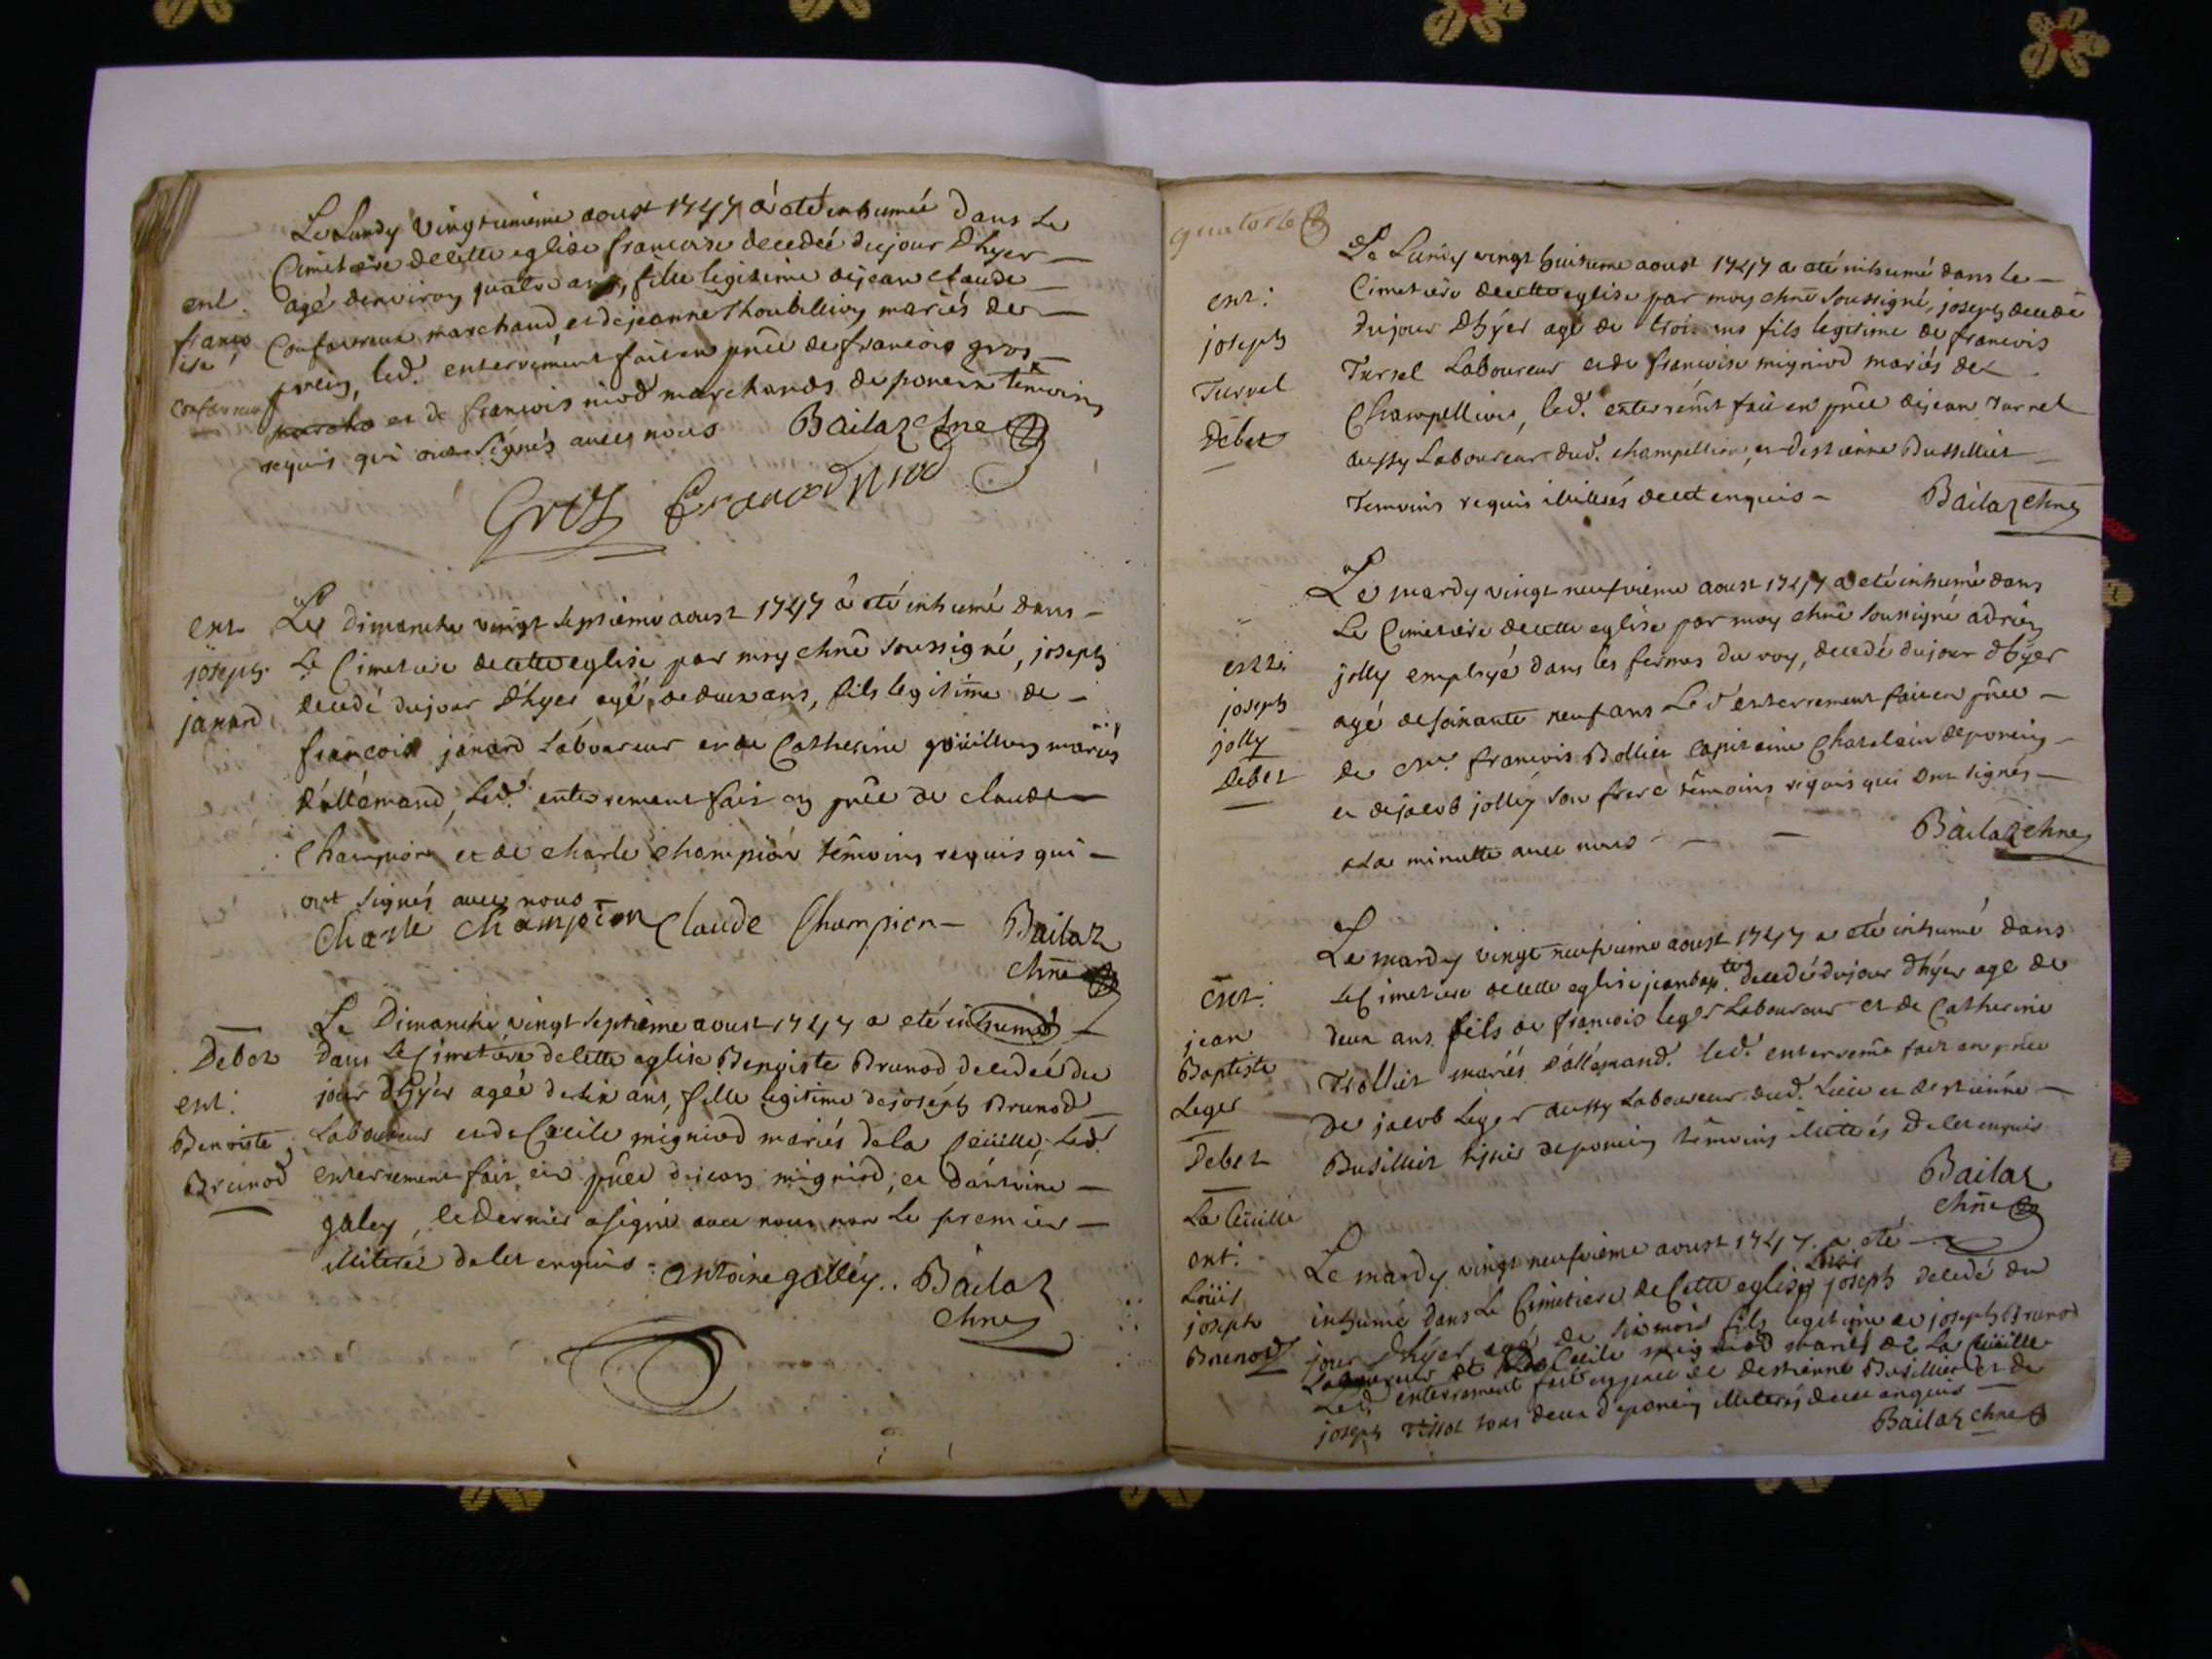 Le Lundy vingtunieme aoust 1747 a eté inhumée dans Le
Cimetiere de cette eglise francoise decedeé du jour d'hyer
agé denviron quatre ans, fille legitime de jean claude
marchand, et de jeanne mariés de
prein, led. enterrement fait en pñce de francois gros
et de francois niod marchands de poncin témoins
requis qui ont signés avec nous Bailaz chne
Groz
ent.
franco
ise
Le Dimanche vingt septieme aoust 1747 a eté inhumé dans
Le Cimetiere de cette eglise par moy chñe soussigné, joseph
decedé du jour d'hyer agé de deux ans, fils legitime de
francois janard Laboureur et de Catherine mariés
d'allémand, led. enterrement fait en pñce de claude
Champion et de charle champion témoins requis qui
ont signés avec nous
Charle Champion Claude Champion Bailaz
chñe
ent
joseph
janard
Le Dimanche vingt septieme aoust 1747 a eté inhumé
dans le Cimetiere de cette eglise Benoiste Brunod decedeé du
jour d'hyer ageé de six ans, fille legitime de joseph Brunod
Laboureur et de Cecile migniod mariés de la Cüeille, led.
enterrement fait en pñce de jean migniod, et d'antoine
galey, le dernier a signé avec nous non le premier
illiteré de cet enquis antoine galley. Bailaz
chne
Debet
ent.
Benoiste
Brunod
quatorze
Le Lundy vingt huitieme aoust 1747 a eté inhumé dans le
Cimetiere de cette eglise par moy chñe soussigné, joseph decedé
du jour d'hyer agé de trois ans fils legitime de francois
Turrel Laboureur et de francoise migniod mariés de
Champellion, led. enterremt fait en pñce de jean Turrel
aussy Laboureur dud. champellion, et d'estienne Bussillier
Temoins requis illiterés de cet enquis Bailaz chne
ent.
joseph
Turrel
Debet
Le mardy vingt neufvieme aoust 1747 a eté inhumé dans
Le Cimetiere de cette eglise par moy chñe soussigné adrien
jolly employé dans les fermes du roy, decedé du jour d'hyer
agé de soixante neuf ans Led enterrement fait en pñce
de sr. francois Bollier capitaine Chatelain de poncin
et de jacob jolly son frere témoins requis qui ont signés
a la minutte avec nous Bailaz chne
joseph
jolly
Debet
Le mardy vingt neufvieme aoust 1747 a eté inhumé dans
Le Cimetiere de cette eglise jean bapte. decedé du jour d'hyer agé de
deux ans fils de francois leger Laboureur et de Catherine
Trollier mariés d'allémand. led. enterremẽ fait en pñce
de jacob Leger aussy Laboureur dud. Lieu et d'estienne
Busillier de poncin témoins illiterés de cet enquis
Bailaz
chñe
ent.
jean
Baptiste
Leger
Debet
Le mardy vingt neufvieme aoust 1747. a eté
inhumé dans Le Cimetiere de Cette eglise Loüis joseph decedé du
jour d'hyer agé de six mois fils legitime de joseph Brunod
Laboureur et de Cecile migniod mariés de La Cüeille
Led. enterrement fait en pñce de d'estienne Busillier et de
joseph Tissot tous deux de poncin illiterés de cet enquis
Bailaz chne
La Cüeille
ent.
Loüis
joseph
Brunod